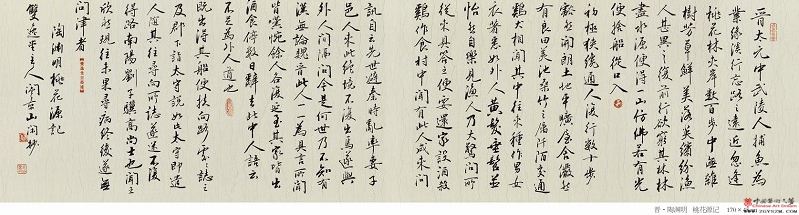 晋太元中武陵人捕魚為
業緣溪行忘路之遠近忽逢
桃花林夾岸數百步中無雜
樹芳草鮮美落英繽紛漁
人甚異之復前行欲窮其林林
盡水源便得一山仿佛若有光
便捨船從口入
初極狹纔通人復行數十步
豁然開朗土地平曠屋舍儼然
有良田美池桑竹之屬阡陌交通
鷄犬相聞其中往來種作男女
衣著悉如外人黃髮垂髫並
怡然自樂見漁人乃大驚問所
從來具答之便要還家設酒殺
鷄作食村中聞有此人咸來問
訊自云先世避秦時亂率妻子
邑人來此絕境不復出焉遂與
外人間隔問今是何世乃不知有
漢無論魏晉此人一一為具言所聞
皆嘆惋餘人各復延至其家皆出
酒食停數日辭去此中人語云
不足為外人道也
既出得其船便扶向路處處誌之
及郡下詣太守說如此太守即遣
人隨其往尋向所誌遂迷不復
得路南陽劉子驥高尚士也聞之
欣然規往未果尋病終後遂無
問津者
陶淵明桃花源記
晋·陶渊明 桃花源记